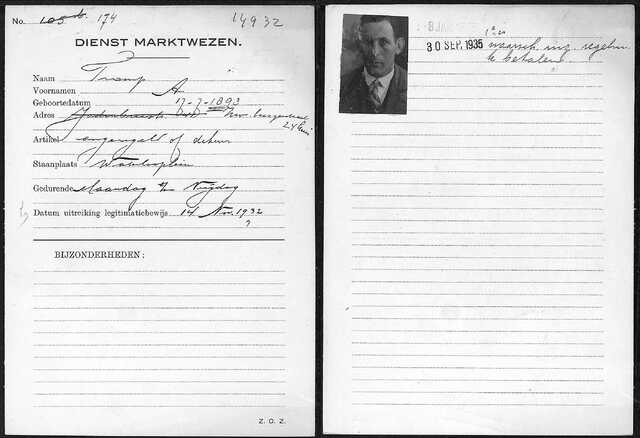 No. 105 d. 174 14932
DIENST MARKTWEZEN.
Naam Tramp
Voornamen A
Geboortedatum 17-7-1893
Adres
24 huis
Artikel ongeregeld of
Staanplaats Waterlooplein
Gedurende Maandag t/m Vrijdag
Datum uitreiking legitimatiebewijs 14 Nov. 1932
?
BIJZONDERHEDEN:
Z. O. Z.
30 SEP. 1935 waarsch. inz. regelm.
te betalen